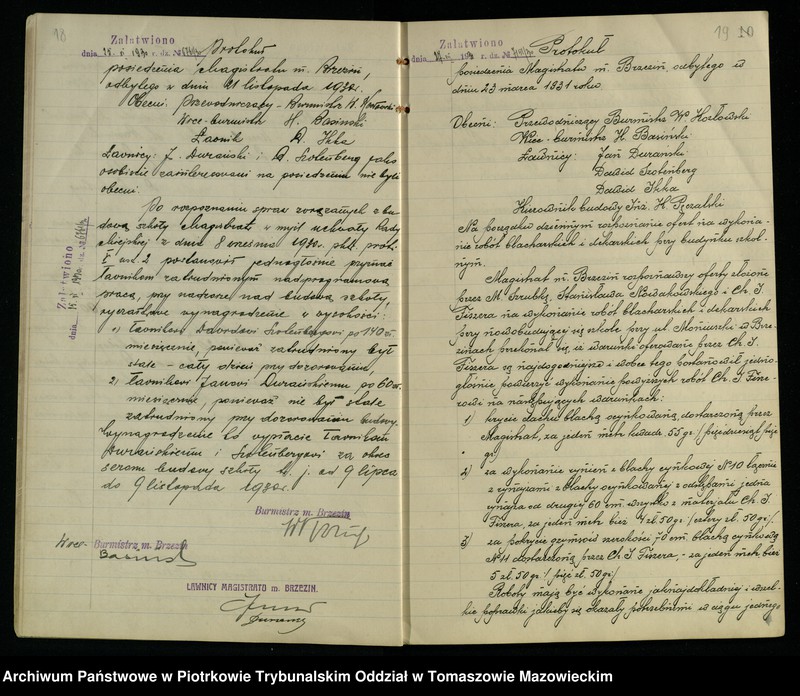 18
Załatwiono
Protokuł
posiedzenia Magistratu m. Brzezin,
odbytego w dniu 21 listopada 1930r.
Obecni: Przewodniczący Burmistrz W.
Wice-burmistrz H. Basiński
Ławnik D. Ikka
Ławnicy: J. Durański i D. Szotenberg jako
osobiście zainteresowani na posiedzeniu nie byli
obecni.
Po rozpoznaniu spraw związanych z bu-
dową szkoły Magistrat w myśl uchwały Rady
Miejskiej z dnia 8 września 1930r.
postanowił jednogłośnie przyznać
ławnikom zatrudnionym nadprogramową
pracą, przy nadzorze nad budową szkoły,
wynagrodzenie w wysokości:
1) ławnikowi Dawidowi Szotenbergowi po 140 zł.
miesięcznie, ponieważ zatrudniony był
stale - cały dzień przy dozorowaniu,
2) ławnikowi Janowi Durańskiemu po 60 zł.
miesięcznie, ponieważ nie był stale
zatrudniony przy dozorowaniu budowy.
Wynagrodzenie to wypłacić ławnikom
Durańskiemu i Szotenbergowi za okres
sezonu budowy szkoły t. j. od 9 lipca
do 9 listopada 1930r.
Burmistrz m. Brzezin
Wice- Burmistrz m. Brzezin
ŁAWNICY MAGISTRATU m. BRZEZIN.
Załatwiono
19
Załatwiono
Protokuł
posiedzenia Magistratu m. Brzezin, odbytego w
dniu 23 marca 1931 roku
Obecni: Przewodniczący Burmistrz Wł. Kozłowski
Wice-burmistrz H. Basiński
Ławnicy: Jan Durański
Dawid Szotenberg
Dawid Ikka
Kierownik budowy Inż. H. Pęczalski
Na porządku dziennym rozpoznanie ofert na wykona-
nie robót blacharskich i dekarskich przy budynku szkol-
nym.
Magistrat m. Brzezin rozpoznawszy oferty złożone
przez M. Szrubkę, Stanisława Nowakowskiego i Ch. I.
Fiszera na wykonanie robót blacharskich i dekarskich
przy nowobudującej się szkole przy ul. Moniuszki w Brze-
zinach przekonał się, iż warunki oferowane przez Ch. I.
Fiszera są najdogodniejsze i wobec tego postanowił jedno-
głośnie powierzyć wykonanie powyższych robót Ch. I. Fisze-
rowi na następujących warunkach:
1) krycie dachu blachą ocynkowaną dostarczoną przez
Magistrat, za jeden metr kwadr. 55 gr. / pięćdziesiąt pięć
gr./
2) za wykonanie rynien z blachy cynkowej №10 łącznie
z rynajzami z blachy ocynkowanej z odstępami jedna
rynajza od drugiej 60 cm wszystko z materjału Ch. I.
Fiszera, za jeden metr bież. 4 zł. 50 gr. / cztery zł. 50 gr./.
3) za pokrycie gzymsów szerokości 70 cm. blachą cynkową
№11 dostarczoną przez Ch. I. Fiszera, - za jeden metr bież.
5 zł. 50 gr. / pięć zł. 50 gr./
Roboty mają być wykonane jaknajdokładniej i wszel-
kie poprawki jakieby się okazały potrzebnemi w ciągu jednego
Archiwum Państwowe w Piotrkowie Trybunalskim Oddział w Tomaszowie Mazowieckim